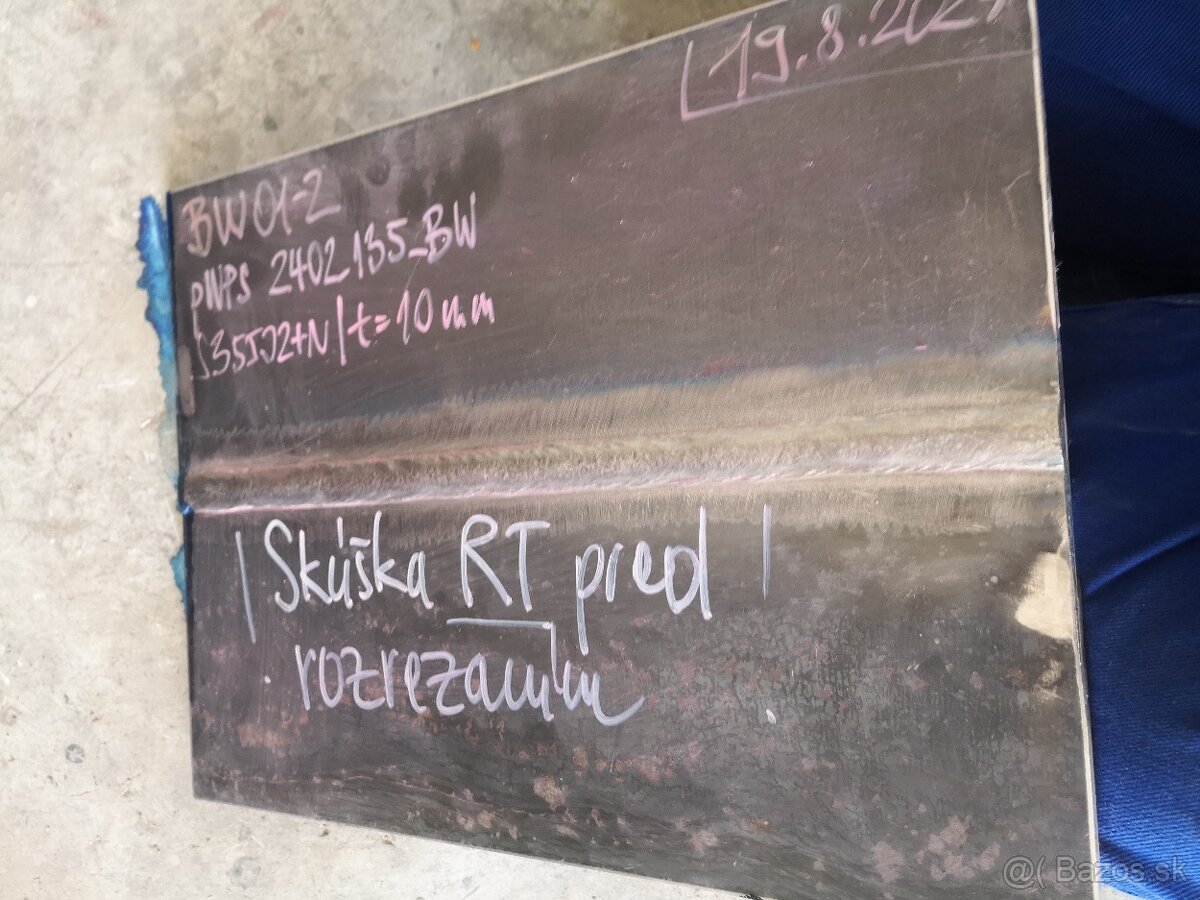 19.8.2024
BW01-2
pWPS 2402135_BW
S355J2+N/t=10mm
Skúška RT pred
rozrezaním
@( Bazos.sk